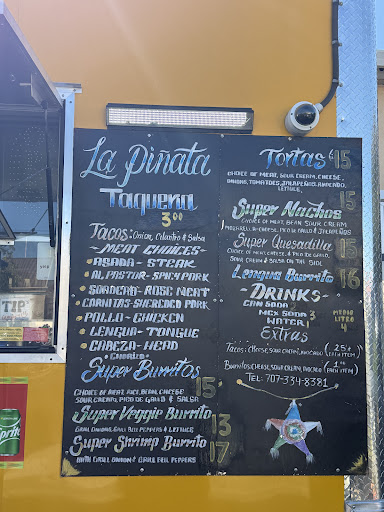 La Piñata
Taqueria
3.00
Tacos: Onion, Cilantro & Salsa
- MEAT CHOICES -
- ASADA - STEAK
- AL PASTOR - SPICY PORK
- CARNITAS - SHREDDED PORK
- POLLO - CHICKEN
- LENGUA - TONGUE
- CABEZA - HEAD
Super Burritos 15
CHOICE OF MEAT, RICE, BEAN, CHEESE
SOUR CREAM, PICO DE GALLO & SALSA
Super Veggie Burrito 13
BELL PEPPERS & LETTUCE
Super Shrimp Burrito 17
WITH GRILL ONION & GRILL BELL PEPPERS
Tortas 15
CHOICE OF MEAT, SOUR CREAM, CHEESE,
ONIONS, TOMATOES, JALAPEÑOS, AVOCADO,
LETTUCE,
Super Nachos 15
CHOICE OF MEAT, BEAN, SOUR CREAM
PICO DE GALLO & JALAPEÑOS
Super Quesadilla 15
CHOICE OF MEAT, CHEESE, & PICO DE GALLO,
SOUR CREAM & SALSA ON THE SIDE
Lengua Burrito 16
- DRINKS -
CAN SODA 2
MEX SODA 3
WATER 1
MEDIO
LITRO
4
Extras
TACOS: CHEESE, SOUR CREAM, AVOCADO (.25¢ EACH ITEM)
BURRITOS: CHEESE, SOUR CREAM, AVOCADO (1.00 EACH ITEM)
TEL: 707-334-8381
TIP
Sprite